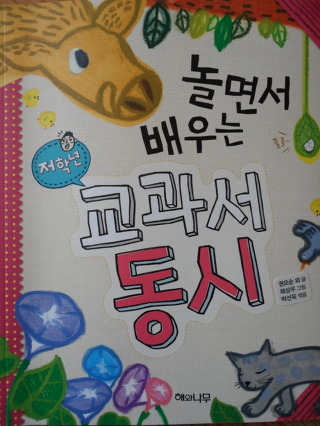 놀면서
배우는
저학년
교과서
동시
권오순 외 글
채상우 그림
박선욱 엮음
해와나무